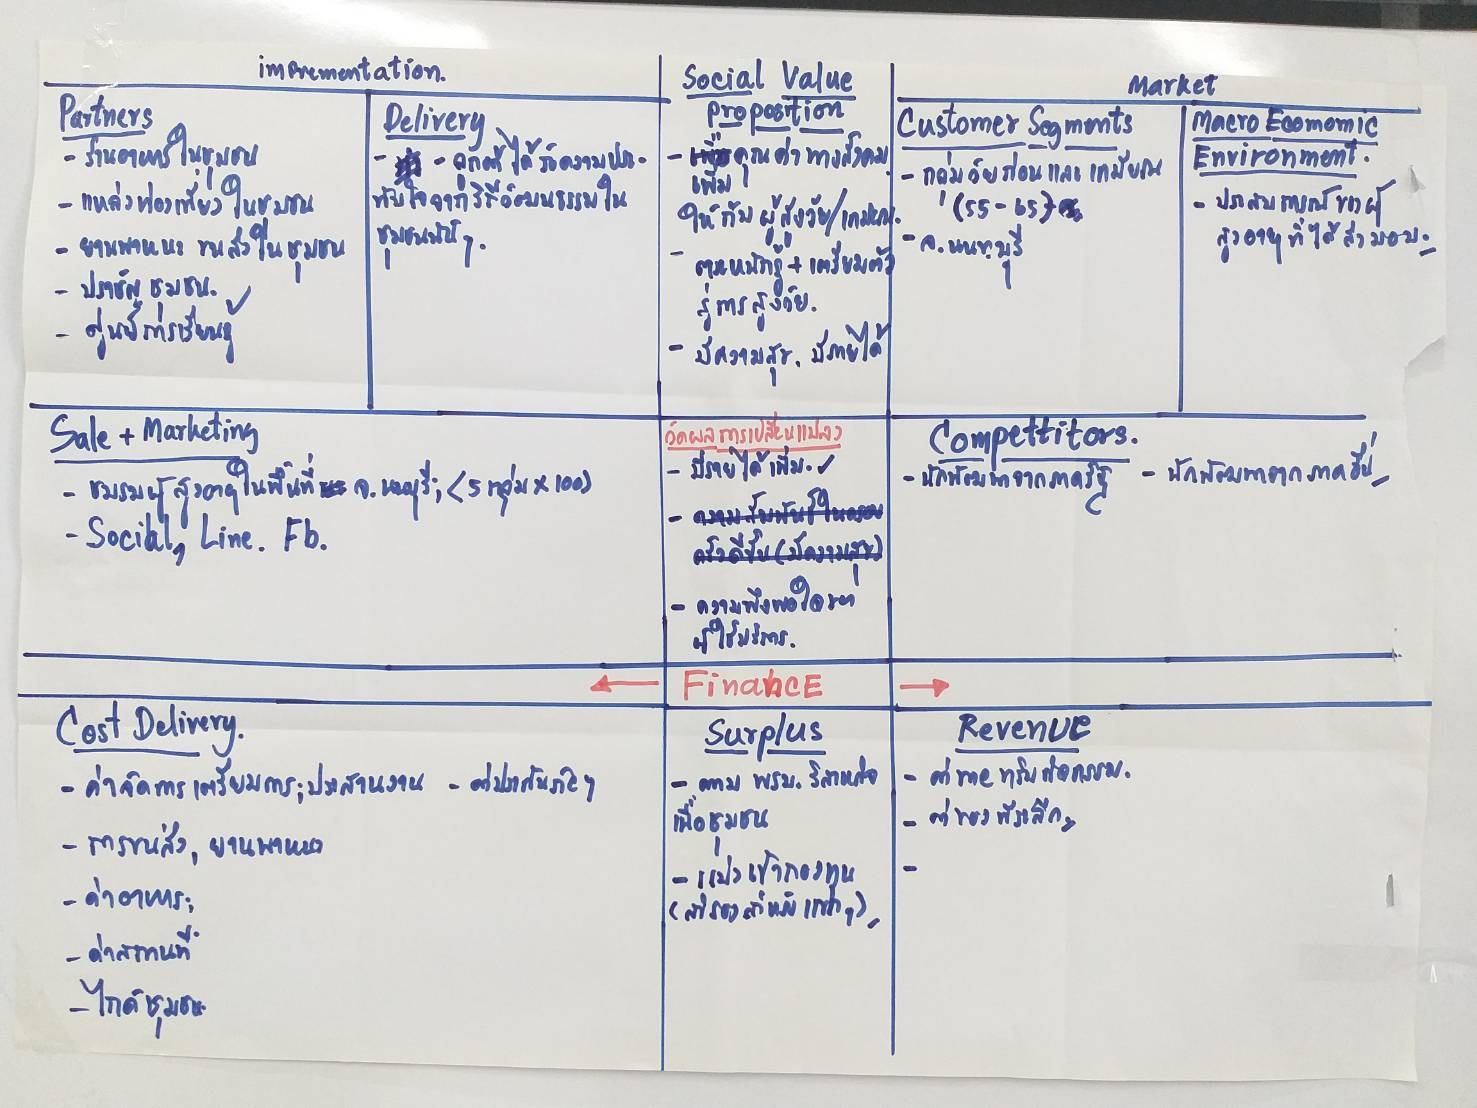 imprementation.
Partners
- ร้านอาหารในชุมชน
- แหล่งท่องเที่ยวในชุมชน
- ยานพาหนะ ขนส่งในชุมชน
- ปราชญ์ชุมชน.
- ศูนย์การเรียนรู้
Delivery
- - ลูกค้าได้รับความประ-
ทับใจจากวิถีวัฒนธรรมใน
ชุมชนนั้นๆ.
Social Value
Proposition
- คุณค่าทางสังคม
เพิ่ม
ให้กับ ผู้สูงวัย/เกษียณ.
- ตระหนักรู้ + เตรียมตัว
สู่การสูงวัย.
- มีความสุข. มีรายได้
Market
Customer Segments
- กลุ่มวัยก่อนและเกษียณ
(55-65)
- จ.นนทบุรี
Macro Ecomomic
Environment.
- ประสบการณ์ของผู้
สูงอายุที่ได้ส่งมอบ.
Sale + Marketing
- ชมรมผู้สูงอายุในพื้นที่ จ.นนทบุรี; (5 กลุ่ม x 100)
- Social, Line. Fb.
วัดผลการเปลี่ยนแปลง
- มีรายได้เพิ่ม. ✓
- ความสัมพันธ์ในครอบ
ครัวดีขึ้น (มีความสุข)
- ความพึงพอใจของ
ผู้ใช้บริการ.
Compettitors.
- นักพัฒนาจากภาครัฐ - นักพัฒนาจากภาคอื่น
← FinaNCE →
Cost Delivery.
- ค่าจัดการเตรียมการ; ประสานงาน - ค่าประกันภัยๆ
- การขนส่ง, ยานพาหนะ
- ค่าอาหาร;
- ค่าสถานที่
- ไกด์ชุมชน
Surplus
- ตาม พรบ. วิสาหกิจ
เพื่อชุมชน
- แบ่งเข้ากองทุน
(สำรองสำหรับ
Revenue
- ค่า กิจกรรม.
- ค่าของที่ระลึก
-